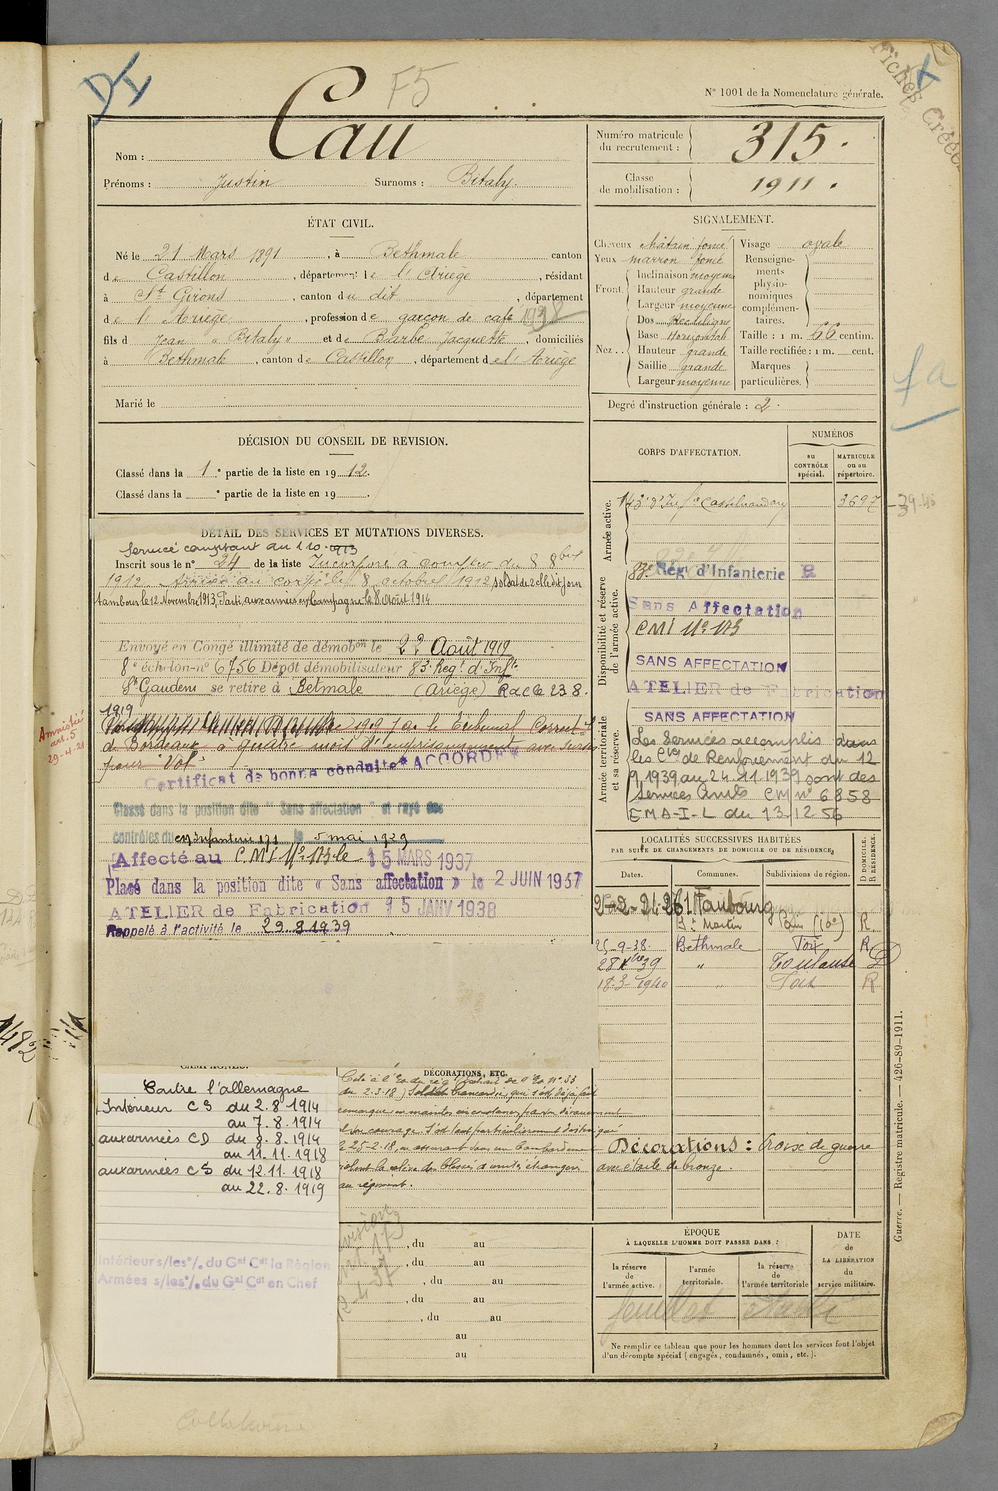 F5
N° 1001 de la Nomenclature générale.
Fiches Créée
Nom : Cau
Prénoms : Justin Surnoms : Bitaly.
Numéro matricule du recrutement : 315.
Classe de mobilisation : 1911.
ÉTAT CIVIL.
Né le 21 Mars 1891, à Bethmale canton
de Castillon, département de l'Ariège, résidant
à St Girons, canton du dit, département
de l'Ariège, profession de garçon de café
fils d Jean "Bitaly" et de Barbe Jacquette, domiciliés
à Bethmale, canton de Castillon, département de l'Ariège
Marié le
SIGNALEMENT.
Cheveux châtain foncé
Yeux marron foncé
Front. Inclinaison moyenne
Hauteur grande
Largeur moyenne
Nez. Dos Rectiligne
Base Horizontale
Hauteur grande
Saillie grande
Largeur moyenne
Visage ovale
Renseignements physionomiques complémentaires.
Taille : 1 m. 66 centim.
Taille rectifiée : 1 m. cent.
Marques particulières.
Degré d'instruction générale : 2.
DÉCISION DU CONSEIL DE REVISION.
Classé dans la 1e partie de la liste en 1912.
Classé dans la e partie de la liste en 19 .
DÉTAIL DES SERVICES ET MUTATIONS DIVERSES.
Service comptant du 1.10.1913
Inscrit sous le n° 24 de la liste Incorporé à compter du 8 8bre
1912. Arrivé au corps le 8 octobre 1912, soldat de 2e cl. le dit jour
tambour le 12 Novembre 1913. Parti aux armées en Campagne le 8 Août 1914
Envoyé en Congé illimité de démobon le 22 Août 1919
8e échelon n° 6756 Dépôt démobilisateur 83e Régt d'Infie
St Gaudens se retire à Betmale (Ariège) R.d.C. le 23.8.
1919
1919 par le Tribunal Correctl
de Bordeaux à quatre mois d'emprisonnement avec sursis
pour "Vol"
Amnistié
art. 5
29-4-21
Certificat de bonne conduite "ACCORDÉ"
Classé dans la position dite "Sans affectation" et rayé des
contrôles du CM Infanterie 173 le 5 mai 1929
Affecté au C M I N° 173 le 15 MARS 1937
Placé dans la position dite « Sans affectation » le 2 JUIN 1937
ATELIER de Fabrication 15 JANV 1938
Rappelé à l'activité le 29.8.1939
CORPS D'AFFECTATION.
NUMÉROS
au CONTRÔLE spécial.
MATRICULE ou au répertoire.
Armée active.
143e d'Infie Castelnaudary 3697
Disponibilité et réserve de l'armée active.
83e Régt d'Infanterie
Sans Affectation
CMI N° 173
SANS AFFECTATION
ATELIER de Fabrication
Armée territoriale et sa réserve.
SANS AFFECTATION
Les Services accomplis dans
les Cies de Renforcement du 12
9.1939 au 24.11.1939 sont des
Services Armés CM n° 6858
EMA-I-L du 13.12.56
LOCALITÉS SUCCESSIVES HABITÉES
PAR SUITE DE CHANGEMENTS DE DOMICILE OU DE RÉSIDENCE.
Dates. Communes. Subdivisions de région. D DOMICILE. R RÉSIDENCE.
261 Faubourg
St Martin R.
25-9-38. Bethmale Foix R.
28 Xbre 39 " Toulouse D
18-3-1940 " Foix R
CAMPAGNES.
Contre l'allemagne
Intérieur C S du 2.8.1914
au 7.8.1914
aux armées C D du 8.8.1914
au 11.11.1918
aux armées C S du 12.11.1918
au 22.8.1919
Intérieur s/les o/. du Gal Cdt la Région
Armées s/les o/. du Gal Cdt en Chef
DÉCORATIONS, ETC.
Cité à l'O. du régt extrait de l'O. N° 33
du 2-3-18. Soldat brancardier, qui s'est déjà fait
remarquer en maintes circonstances par son dévouement
et son courage. S'est tout particulièrement distingué
25-2-18, en assurant sous un bombardement
violent la relève des blessés d'unités étrangères
au régiment.
Décorations : Croix de guerre
avec étoile de bronze.
, du au
, du au
, du au
, du au
, du au
au
au
ÉPOQUE
À LAQUELLE L'HOMME DOIT PASSER DANS :
la réserve de l'armée active.
l'armée territoriale.
la réserve de l'armée territoriale
DATE de LA LIBÉRATION du service militaire.
feuillet
Ne remplir ce tableau que pour les hommes dont les services font l'objet
d'un décompte spécial (engagés, condamnés, omis, etc.).
Guerre. — Registre matricule. — 426-89-1911.